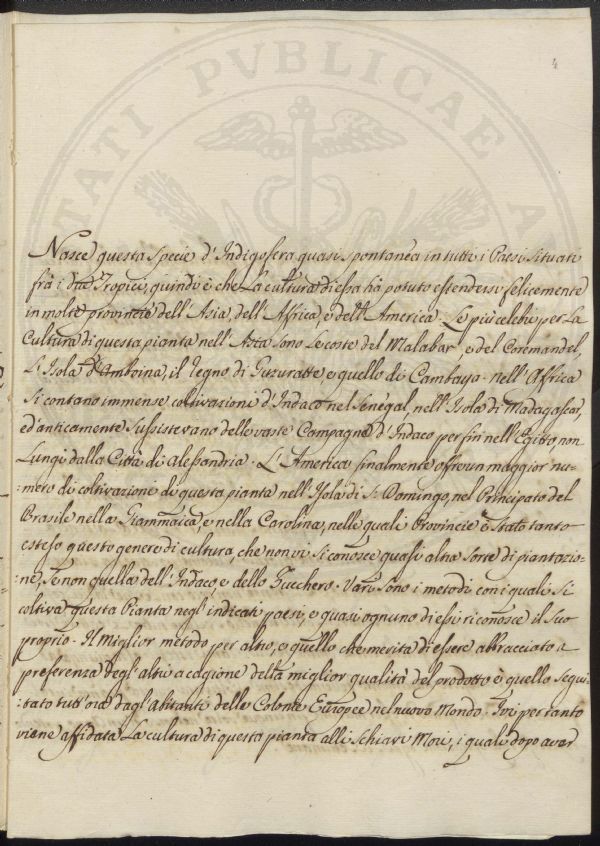 4
Nasce questa specie d'Indigofera quasi spontanea in tutti i Paesi situati
frà i due Tropici, quindi è che la cultura di essa hà potuto estendersi felicemente
in molte provincie dell'Asia, dell'Affrica, e dell'America. Le più celebri per la
Cultura di questa pianta nell'Asia sono le coste del Malabar, e del Coremandel,
l'Isola d'Amboina, il regno di Guzuratte e quello di Cambaya. nell'Affrica
si contano immense coltivazioni d'Indaco nel Senegal, nell'Isola di Madagascar,
ed anticamente sussistevano delle vaste Campagne d'Indaco per fin nell'Egitto, non
lungi dalla Città di Alessandria. L'America finalmente offre un maggior nu=
=mero di coltivazioni di questa pianta nell'Isola di S. Domingo, nel Principato del
Brasile nella Giammaica, e nella Carolina, nelle quali Provincie è stato tanto
esteso questo genere di cultura, che non vi si conosce quasi altra sorte di piantazio=
=ne, se non quella dell'Indaco, e dello Zucchero. Varj sono i metodi con i quali si
coltiva questa Pianta negl'indicati paesi, e quasi ognuno di essi riconosce il suo
proprio. Il miglior metodo per altro, e quello che merita di essere abbracciato a
preferenza degl'altri a cagione della miglior qualità del prodotto è quello segui=
=tato tutt'ora dagl'abitanti delle Colonie Europee nel nuovo Mondo. Ivi per tanto
viene affidata la cultura di questa pianta alli schiavi Mori, i quali dopo aver
TATI PVBLICAE